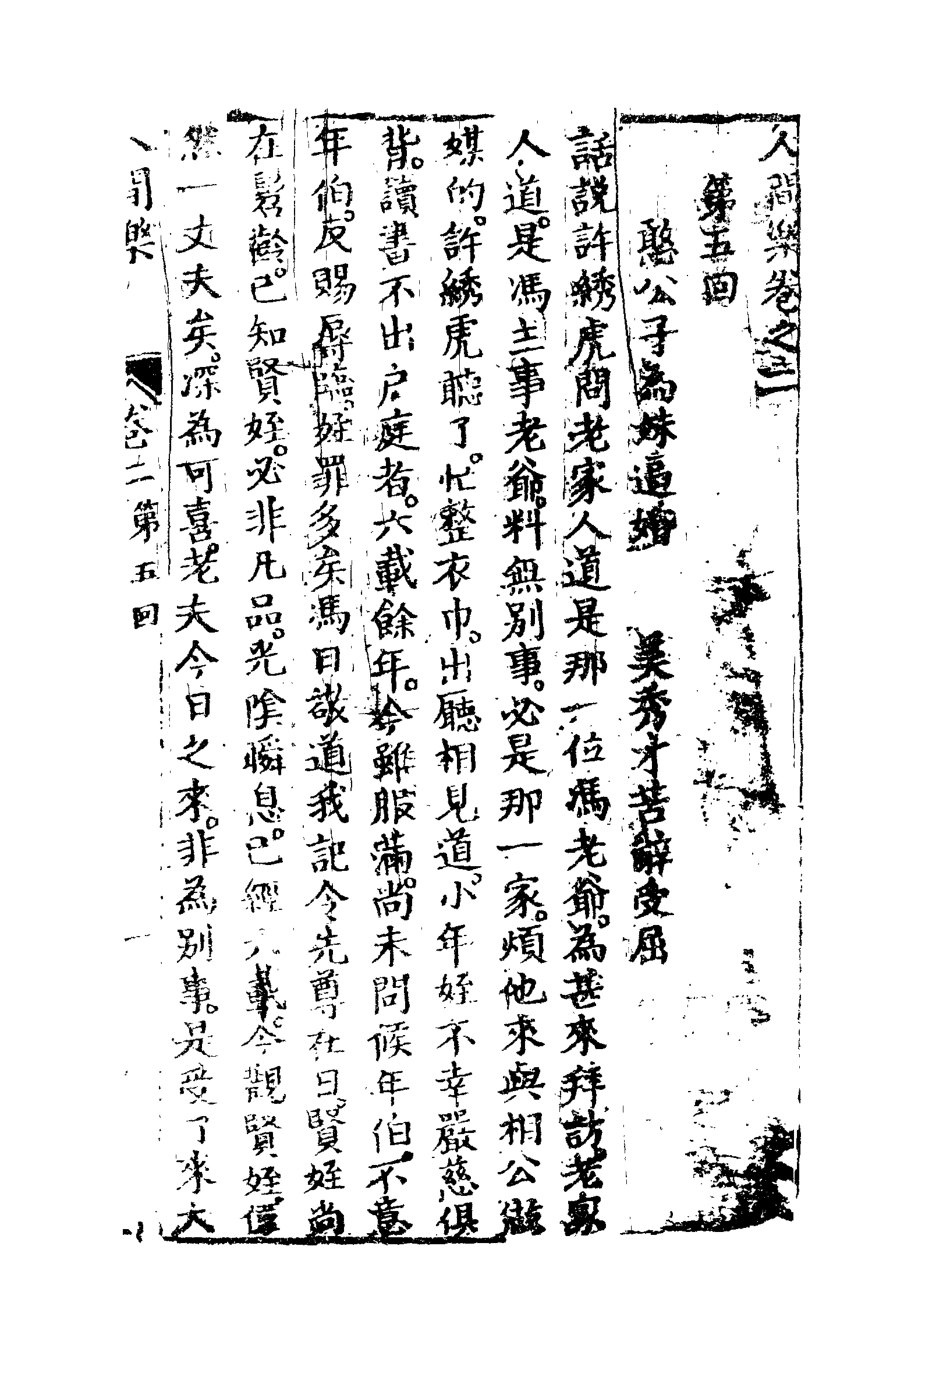 人間樂卷之二
第五回
憨公子為妹逼婚　美秀才苦辭受屈
話說許綉虎問老家人道是那一位馮老爺。為甚來拜訪。老家
人道。是馮主事老爺。料無別事。必是那一家。煩他來與相公做
媒的。許綉虎聽了。忙整衣巾。出廳相見道。小年姪不幸嚴慈俱
背。讀書不出户庭者。六載餘年。今雖服滿。尚未問候年伯。不意
年伯。反賜辱臨。姪罪多矣馮日 道我記令先尊在日。賢姪尚
在髫齡。已知賢姪。必非凡品。光陰瞬息。已經六載。今觀賢姪。儼
然一丈夫矣。深為可喜。老夫今日之來。非為別事。是受了來大
人間樂　卷二第五回　一